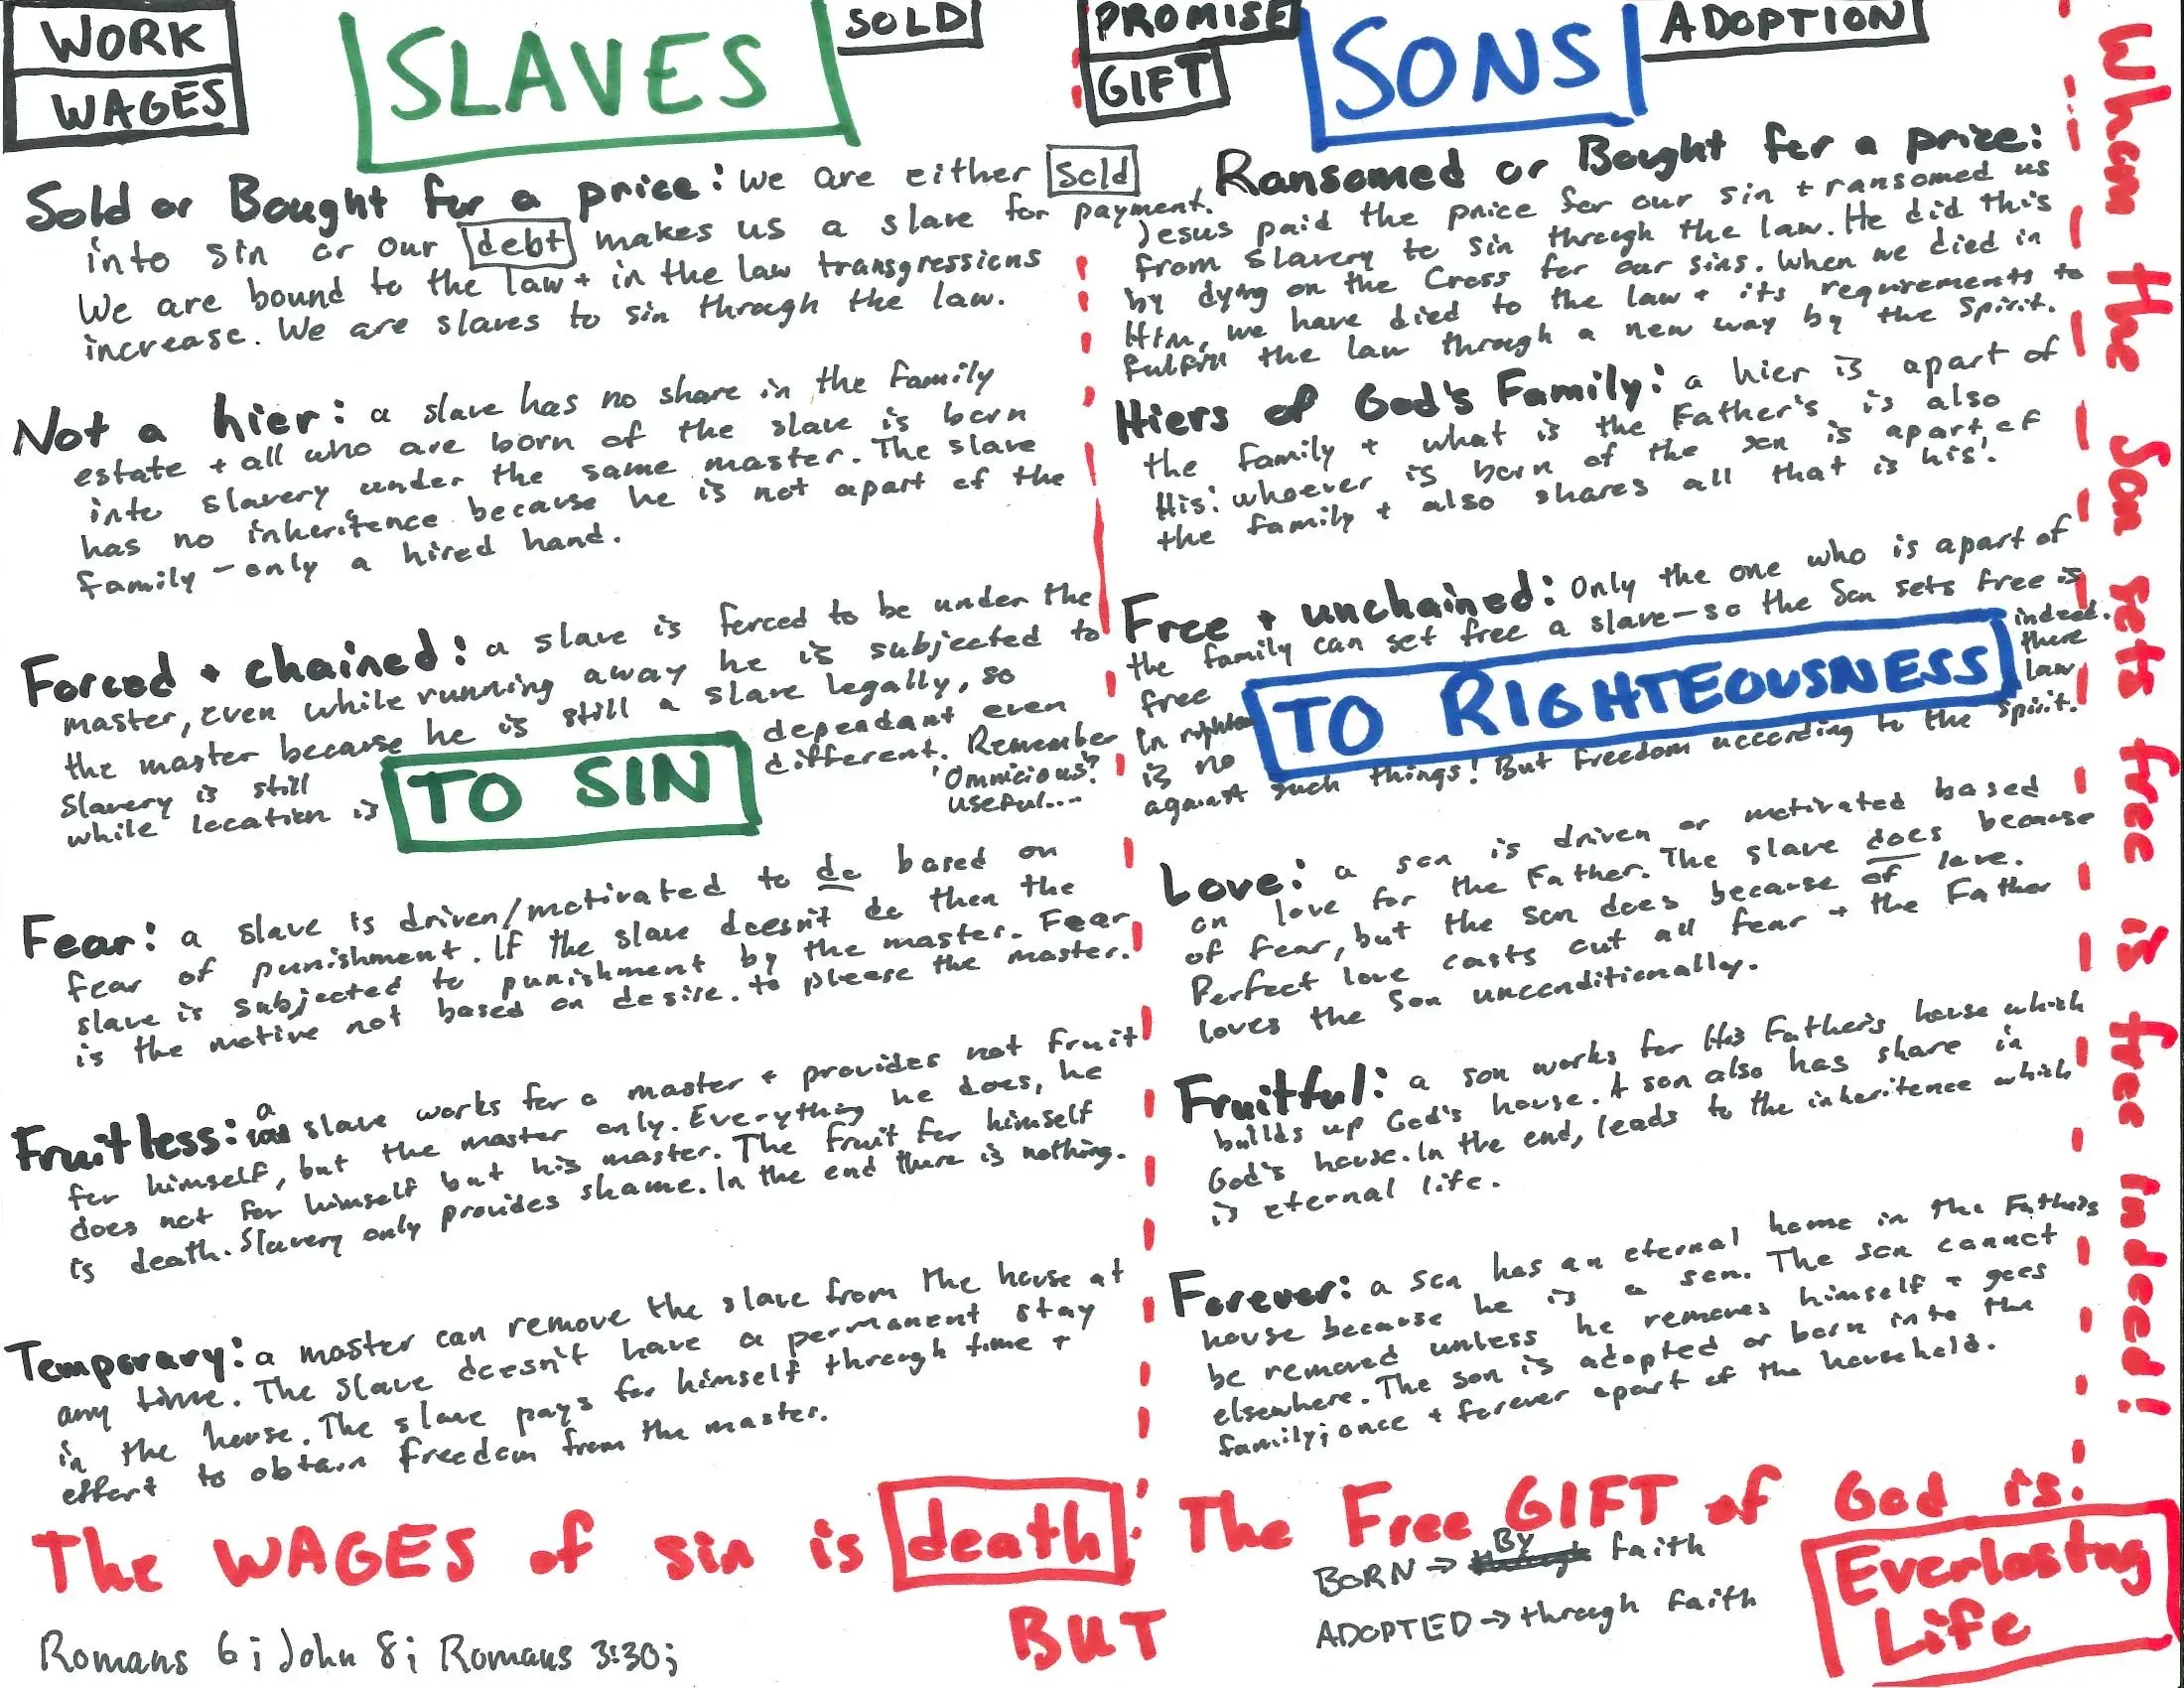 WORK
WAGES
SLAVES
SOLD
Sold or Bought for a price: We are either sold
into sin or our debt makes us a slave for payment.
We are bound to the law + in the law transgressions
increase. We are slaves to sin through the law.
Not a hier: a slave has no share in the family
estate + all who are born of the slave is born
into slavery under the same master. The slave
has no inheritence because he is not apart of the
family - only a hired hand.
Forced + chained: a slave is forced to be under the
master, even while running away he is subjected to
the master because he is still a slave legally, so
Slavery is still dependant even
while location is different. Remember
'Omnicious?'
useful....
TO SIN
Fear: a slave is driven/motivated to do based on
fear of punishment. If the slave doesn't do then the
slave is subjected to punishment by the master. Fear
is the motive not based on desire. to please the master.
Fruitless: a slave works for a master + provides not fruit
for himself, but the master only. Everything he does, he
does not for himself but his master. The fruit for himself
is death. Slavery only provides shame. In the end there is nothing.
Temporary: a master can remove the slave from the house at
any time. The slave doesn't have a permanent stay
in the house. The slave pays for himself through time +
effort to obtain freedom from the master.
The WAGES of sin is death:
BUT
Romans 6; John 8; Romans 3:30;
PROMISE
GIFT
SONS
ADOPTION
Ransomed or Bought for a price:
Jesus paid the price for our sin + ransomed us
from slavery to sin through the law. He did this
by dying on the Cross for our sins. When we died in
Him, we have died to the law + its requirements to
fulfill the law through a new way by the Spirit.
Hiers of God's Family: a hier is apart of
the family + what is the Father's is also
His: whoever is born of the son is apart of
the family + also shares all that is his!
Free + unchained: Only the one who is apart of
the family can set free a slave—so the Son sets free is
free indeed.
In there
is no law
against such things! But freedom according to the Spirit.
TO RIGHTEOUSNESS
Love: a son is driven or motivated based
on love for the Father. The slave does because
of fear, but the son does because of love.
Perfect love casts out all fear + the Father
loves the Son unconditionally.
Fruitful: a son works for His Father's house which
builds up God's house. A son also has share in
God's house. In the end, leads to the inheritence which
is eternal life.
Forever: a son has an eternal home in the Father's
house because he is a son. The son cannot
be removed unless he removes himself + goes
elsewhere. The son is adopted or born into the
family; once + forever apart of the household.
The Free GIFT of God is:
BORN → BY faith
ADOPTED → through faith
Everlasting
Life
Whom the Son sets free is free indeed!